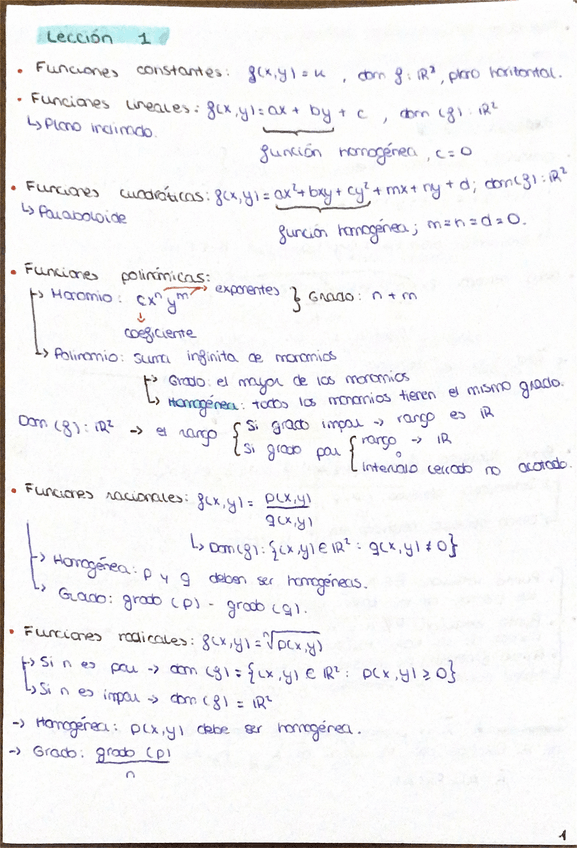 Lección 1
• Funciones constantes: f(x,y) = k , dom f: ℝ², plano horizontal.
• Funciones lineales: f(x,y) = ax + by + c , dom (f): ℝ²
↳ Plano inclinado.
función homogénea, c = 0
• Funciones cuadráticas: f(x,y) = ax² + bxy + cy² + mx + ny + d; dom(f): ℝ²
↳ Paraboloide
función homogénea; m = n = d = 0.
• Funciones polinómicas:
↳ Monomio: cxⁿyᵐ → exponentes } Grado: n + m
↓
coeficiente
↳ Polinomio: suma infinita de monomios
↳ Grado: el mayor de los monomios
↳ Homogénea: todos los monomios tienen el mismo grado.
Dom (f): ℝ² → el rango { Si grado impar → rango es ℝ
Si grado par { rango → ℝ
o
intervalo cerrado no acotado.
• Funciones racionales: f(x,y) = p(x,y)
q(x,y)
↳ Dom(f): {(x,y) ∈ ℝ² : q(x,y) ≠ 0}
↳ Homogénea: p y q deben ser homogéneas.
↳ Grado: grado (p) - grado (q).
• Funciones radicales: f(x,y) = ⁿ√p(x,y)
↳ Si n es par → dom (f) = {(x,y) ∈ ℝ² : p(x,y) ≥ 0}
↳ Si n es impar → dom (f) = ℝ²
→ Homogénea: p(x,y) debe ser homogénea.
→ Grado: grado (p)
n
1